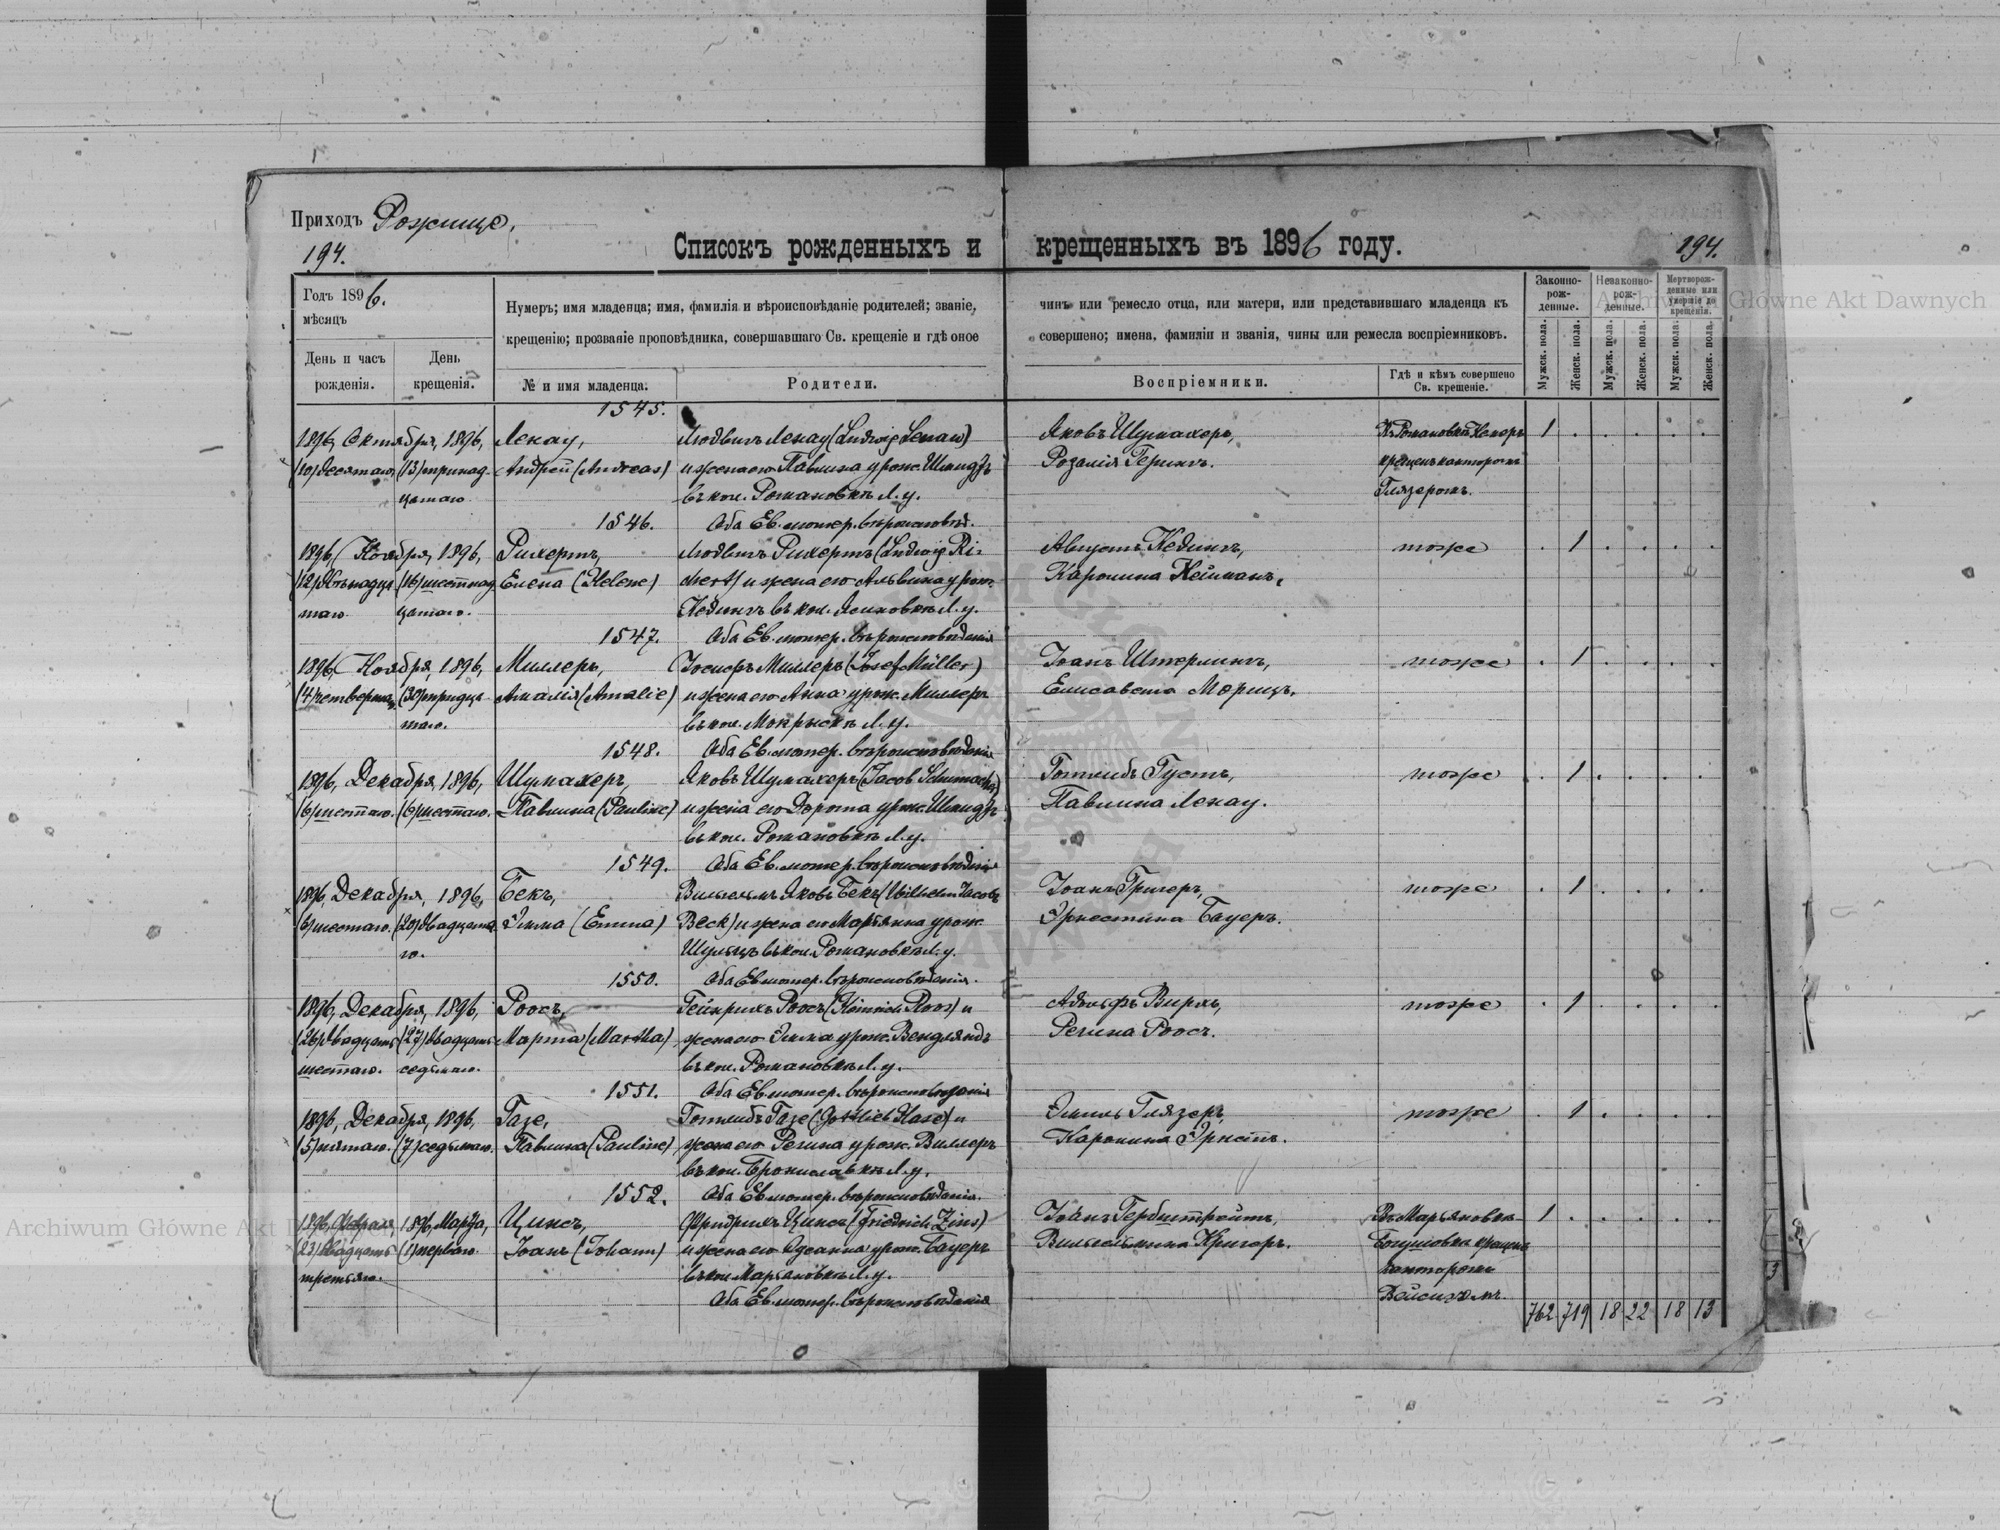 Приходъ Рожище.
194.
Списокъ рожденныхъ и крещенныхъ въ 1896 году.
194.
Годъ 1896.
мѣсяцъ
День и часъ рожденія.
День крещенія.
Нумеръ; имя младенца; имя, фамилія и вѣроисповѣданіе родителей; званіе, чинъ или ремесло отца, или матери, или представившаго младенца къ
крещенію; прозваніе проповѣдника, совершавшаго Св. крещеніе и гдѣ оное совершено; имена, фамиліи и званія, чины или ремесла воспріемниковъ.
№ и имя младенца.
Родители.
Воспріемники.
Гдѣ и кѣмъ совершено Св. крещеніе.
Законно-рож-денные.
Незаконно-рож-денные.
Мертворож-денные или умершіе до крещенія.
Мужск. пола.
Женск. пола.
Мужск. пола.
Женск. пола.
Мужск. пола.
Женск. пола.
1545.
1896, Октября, 1896, Ленау, Людвигъ Ленау (Ludwig Lenau) Яковъ Шумахеръ, 1
(10) десятаго, (13) тринад- Андрей (Andreas) и жена его Павлина урож. Шмидтъ Розалія Герингъ. крещенъ канторомъ
цатаго въ кол. Романовкѣ Л. у. Глязеромъ.
1546. Оба Ев. лютер. вѣроисповѣд.
1896, Ноября, 1896, Рихертъ, Людвигъ Рихертъ (Ludwig Ri- Августъ Недингъ, тоже 1
(12) двѣнадца- (16) шестнад- Елена (Helene) chert) и жена его Альвина урож. Каролина Нейманъ.
таго цатаго. Недингъ въ кол. Яснновкѣ Л. у.
1547. Оба Ев. лютер. вѣроисповѣданія
1896, Ноября, 1896, Миллеръ, Іосифъ Миллеръ (Josef Müller) Іоанъ Штерлингъ, тоже 1
(4) четвертаго, (30) тридца- Амалія (Amalie) и жена его Анна урож. Миллеръ Елисавета Морицъ.
таго. въ кол. Мокрыскѣ Л. у.
1548. Оба Ев. лютер. вѣроисповѣданія
1896, Декабря, 1896, Шумахеръ, Яковъ Шумахеръ (Jacob Schumacher) Готлибъ Густъ, тоже 1
(6) шестаго. (6) шестаго. Павлина (Pauline) и жена его Дорота урож. Шмидтъ Павлина Ленау.
въ кол. Романовкѣ Л. у.
1549. Оба Ев. лютер. вѣроисповѣданія
1896, Декабря, 1896, Бекъ, Вильгельмъ Яковъ Бекъ (Wilhelm Jacob Іоанъ Григеръ, тоже 1
(6) шестаго. (20) двадцата- Эмма (Emma) Beck) и жена его Марьянна урож. Эрнестина Бауеръ.
го. Шульцъ въ кол. Романовкѣ Л. у.
1550. Оба Ев. лютер. вѣроисповѣданія.
1896, Декабря, 1896, Роосъ, Гейнрихъ Роосъ (Heinrich Roos) и Адольфъ Вирхъ, тоже 1
(26) двадцать (27) двадцать Марта (Martha) жена его Эмма урож. Вендляндъ Регина Роосъ.
шестаго. седьмаго. въ кол. Романовкѣ Л. у.
1551. Оба Ев. лютер. вѣроисповѣданія
1896, Декабря, 1896, Газе, Готлибъ Газе (Gottlieb Hase) и Эмиль Глязеръ, тоже 1
(5) пятаго. (7) седьмаго. Павлина (Pauline) жена его Регина урож. Виллеръ Каролина Эрнстъ.
въ кол. Брониславкѣ Л. у.
1552. Оба Ев. лютер. вѣроисповѣданія.
1896, Февраля, 1896, Марта, Цинсъ, Фридрихъ Цинсъ (Friedrich Zins) Іоанъ Гербштрейтъ, Въ Марьяновкѣ 1
(23) двадцать (1) перваго. Іоанъ (Johann) и жена его Юсанна урож. Бауеръ Вильгельмина Кригеръ. крещенъ
третьяго. въ кол. Марьяновкѣ Л. у. канторомъ
Оба Ев. лютер. вѣроисповѣданія
762 719 18 22 18 13
Archiwum Główne Akt Dawnych
Archiwum Główne Akt Dawnych